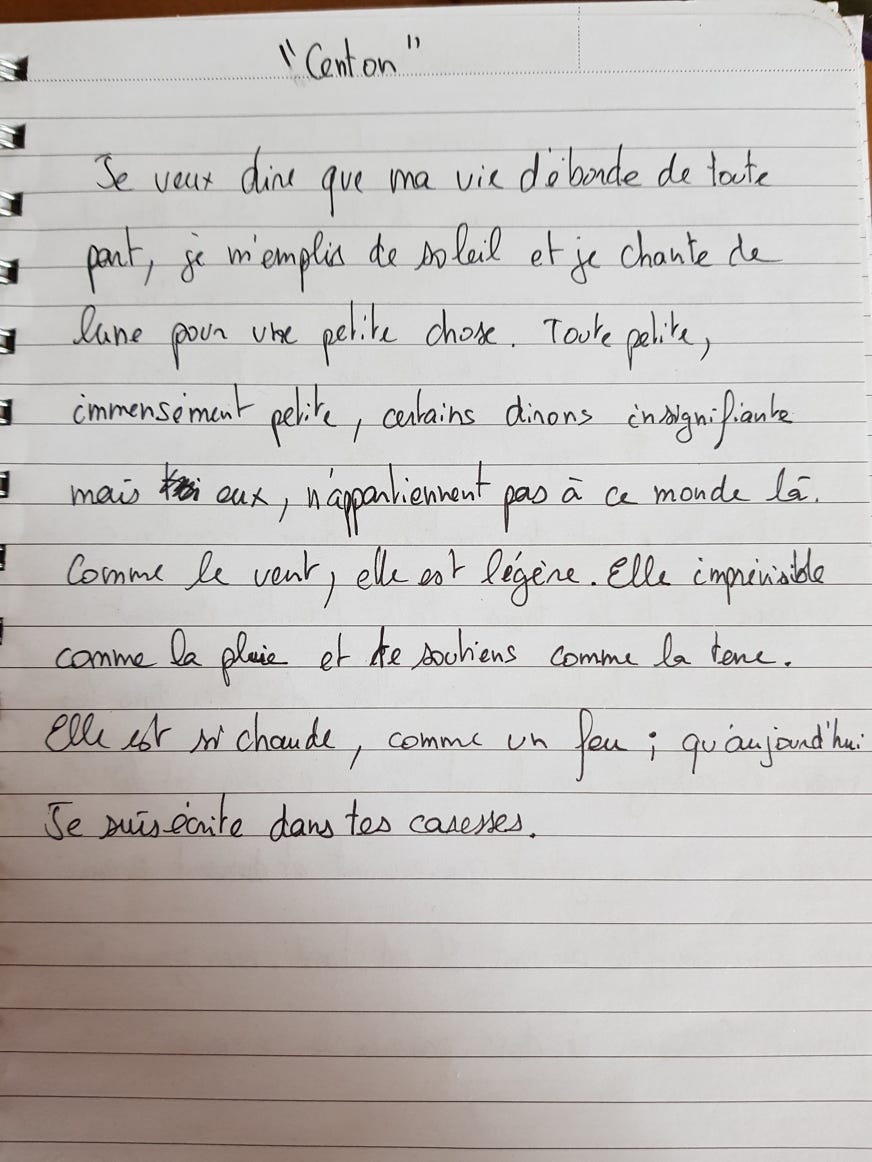 "Centon"
Je veux dire que ma vie déborde de toute
part, je m'emplis de soleil et je chante de
lune pour une petite chose. Toute petite,
immensément petite, certains dirons insignifiante
mais eux, n'appartiennent pas à ce monde là.
Comme le vent, elle est légère. Elle imprévisible
comme la pluie et te soutiens comme la terre.
Elle est si chaude, comme un feu ; qu'aujourd'hui
Je suis écrite dans tes caresses.